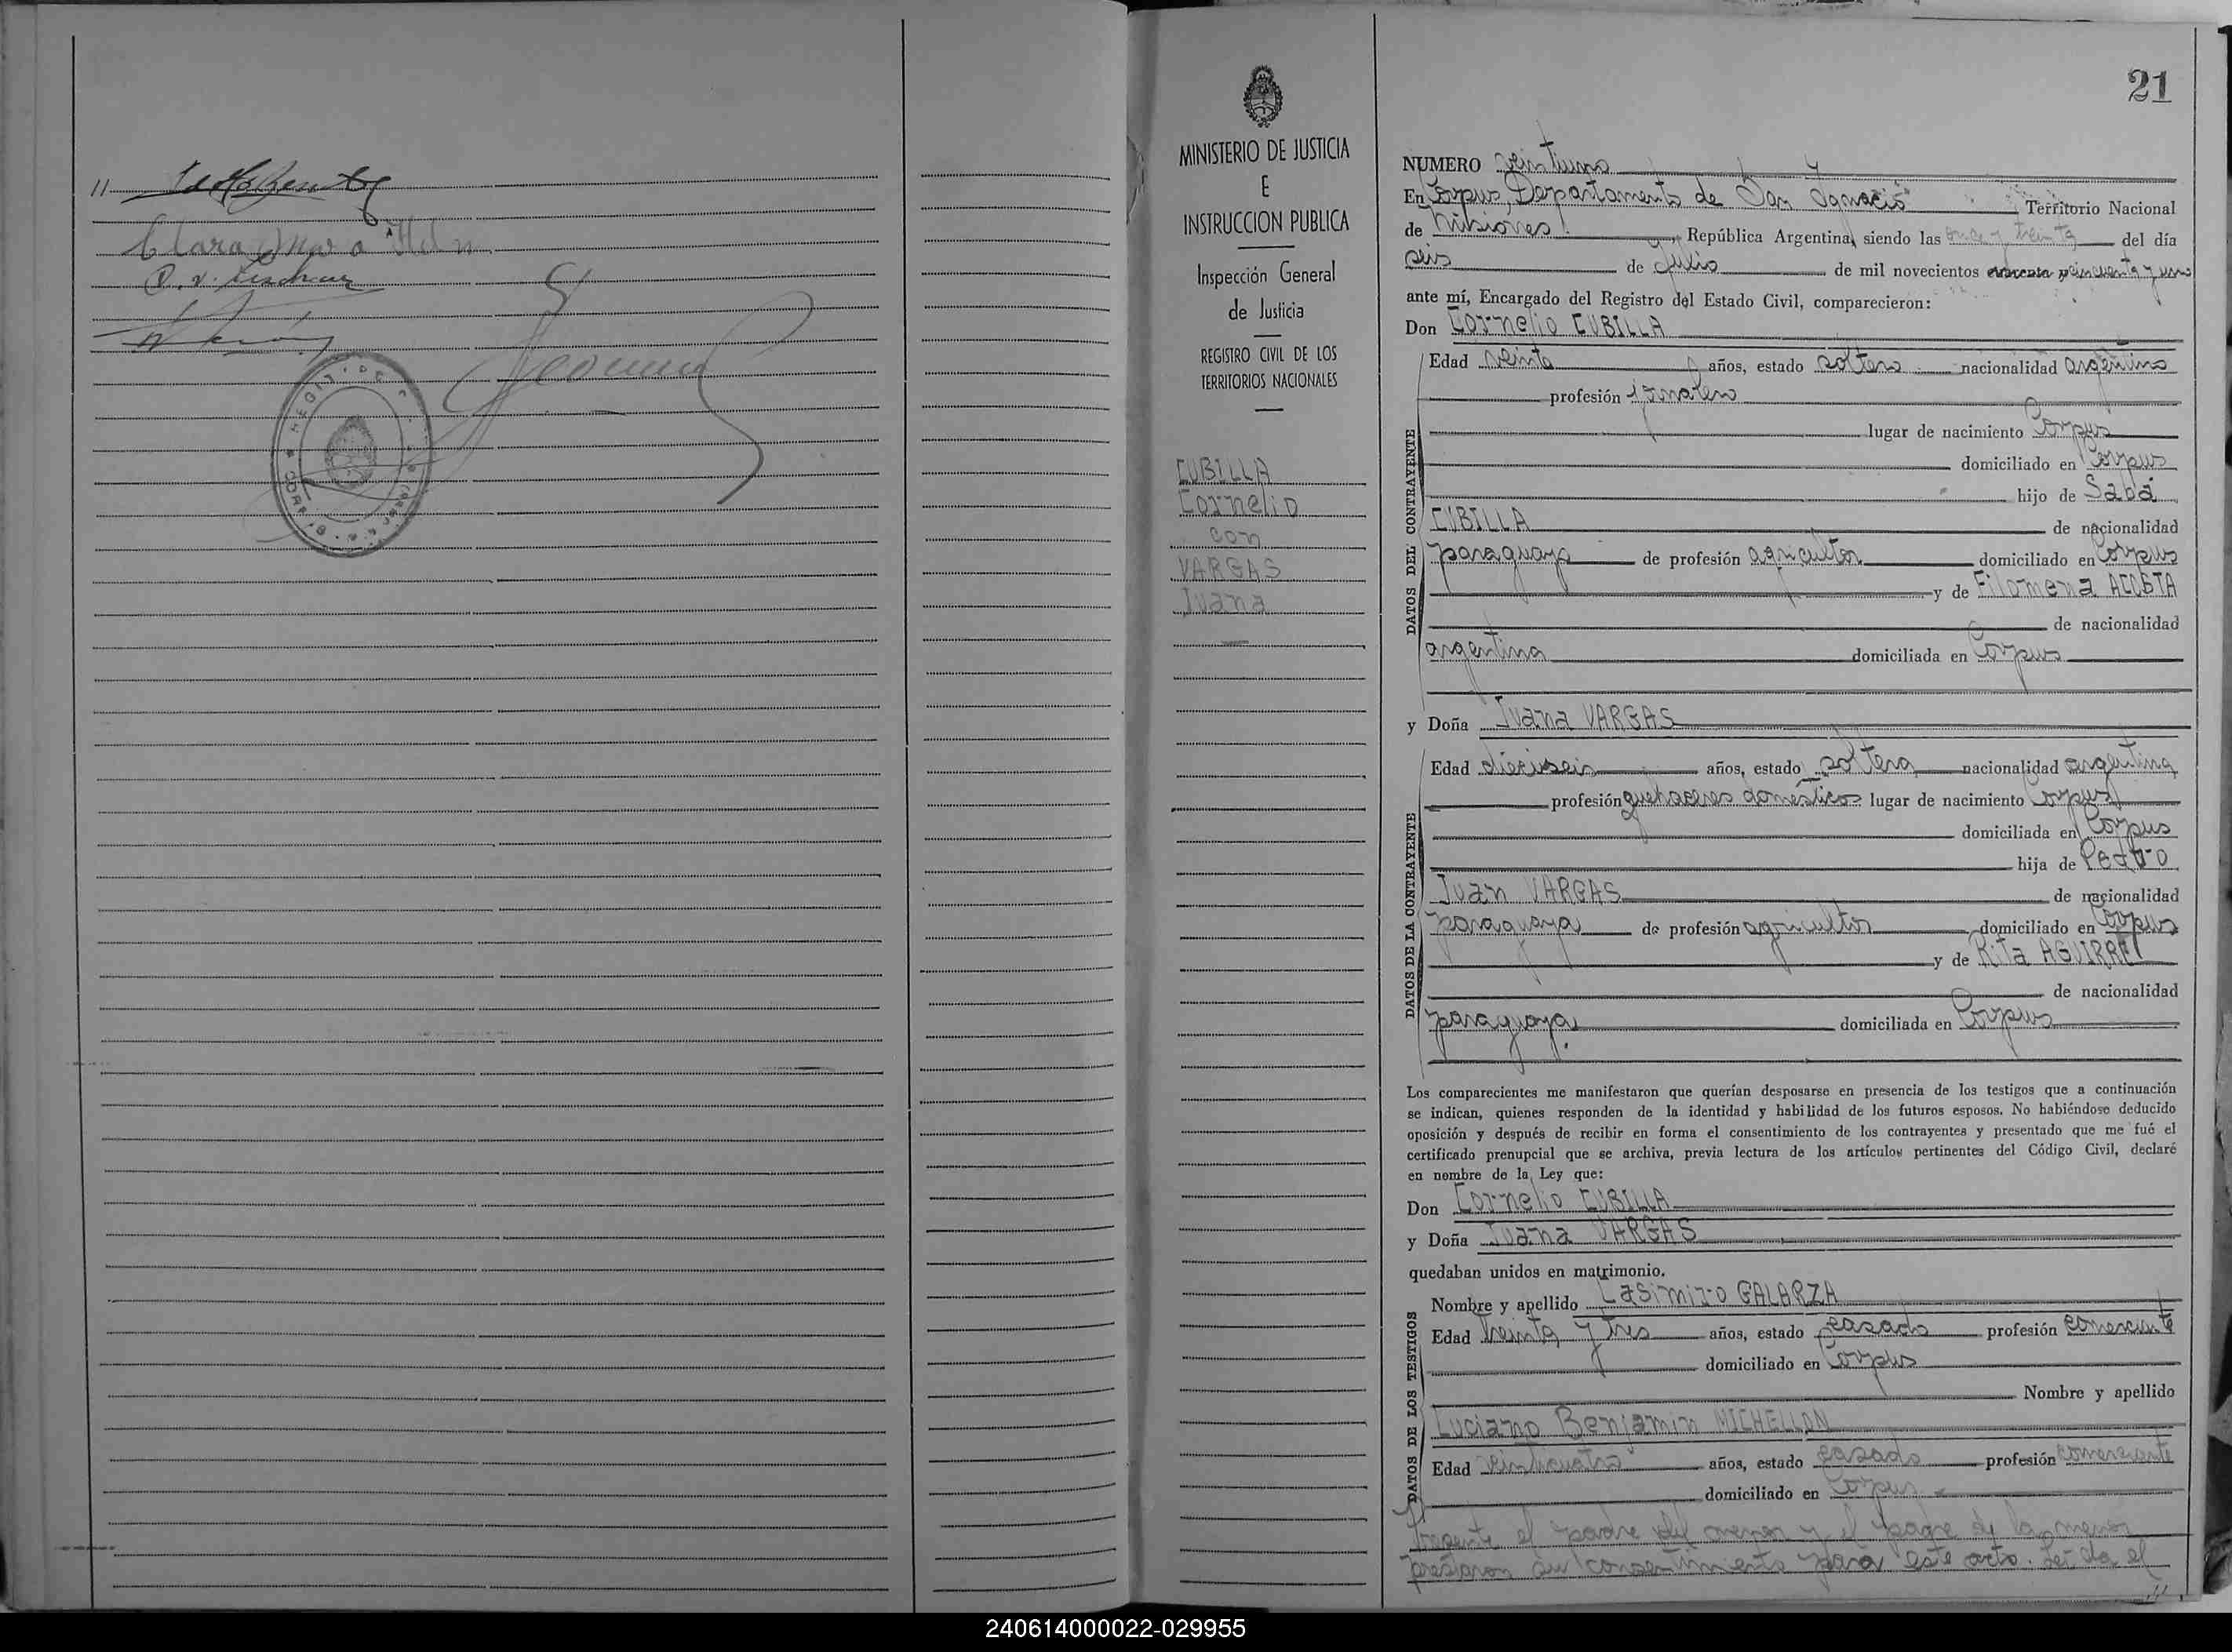 11
Clara
MINISTERIO DE JUSTICIA
E
INSTRUCCION PUBLICA
Inspección General
de Justicia
REGISTRO CIVIL DE LOS
TERRITORIOS NACIONALES
CUBILLA
Cornelio
con
VARGAS
Juana
21
NUMERO veintiuno
En Corpus, Departamento de San Ignacio Territorio Nacional
de Misiones República Argentina, siendo las once y treinta del día
seis de Julio de mil novecientos cuarenta y cincuenta y uno
ante mí, Encargado del Registro del Estado Civil, comparecieron:
Don Cornelio CUBILLA
Edad veinte años, estado soltero nacionalidad argentino
profesión jornalero
lugar de nacimiento Corpus
domiciliado en Corpus
hijo de Sabá
CUBILLA de nacionalidad
paraguaya de profesión agricultor domiciliado en Corpus
y de Filomena ACOSTA
de nacionalidad
argentina domiciliada en Corpus
DATOS DEL CONTRAYENTE
y Doña Juana VARGAS
Edad dieciseis años, estado soltera nacionalidad argentina
profesión quehaceres domésticos lugar de nacimiento Corpus
domiciliada en Corpus
hija de Pedro
Juan VARGAS de nacionalidad
paraguaya de profesión agricultor domiciliado en Corpus
y de Rita AGUIRRE
de nacionalidad
paraguaya domiciliada en Corpus
DATOS DE LA CONTRAYENTE
Los comparecientes me manifestaron que querían desposarse en presencia de los testigos que a continuación
se indican, quienes responden de la identidad y habilidad de los futuros esposos. No habiéndose deducido
oposición y después de recibir en forma el consentimiento de los contrayentes y presentado que me fué el
certificado prenupcial que se archiva, previa lectura de los artículos pertinentes del Código Civil, declaré
en nombre de la Ley que:
Don Cornelio CUBILLA
y Doña Juana VARGAS
quedaban unidos en matrimonio.
Nombre y apellido Casimiro GALARZA
Edad treinta y tres años, estado casado profesión comerciante
domiciliado en Corpus
Nombre y apellido
Luciano Benjamin MICHELLON
Edad veinticuatro años, estado casado profesión comerciante
domiciliado en Corpus
DATOS DE LOS TESTIGOS
Presente el padre del menor y el padre de la menor
prestaron su consentimiento para este acto. Leída el
11
240614000022-029955